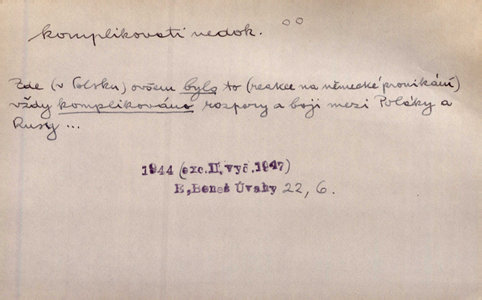 komplikovati nedok.
Zde (v Polsku) ovšem bylo to (reakce na německé pronikání)
vždy komplikováno rozpory a boji mezi Poláky a
Rusy ...
1944 (exc.II.vyč.1947)
E.Beneš Úvahy 22, 6.